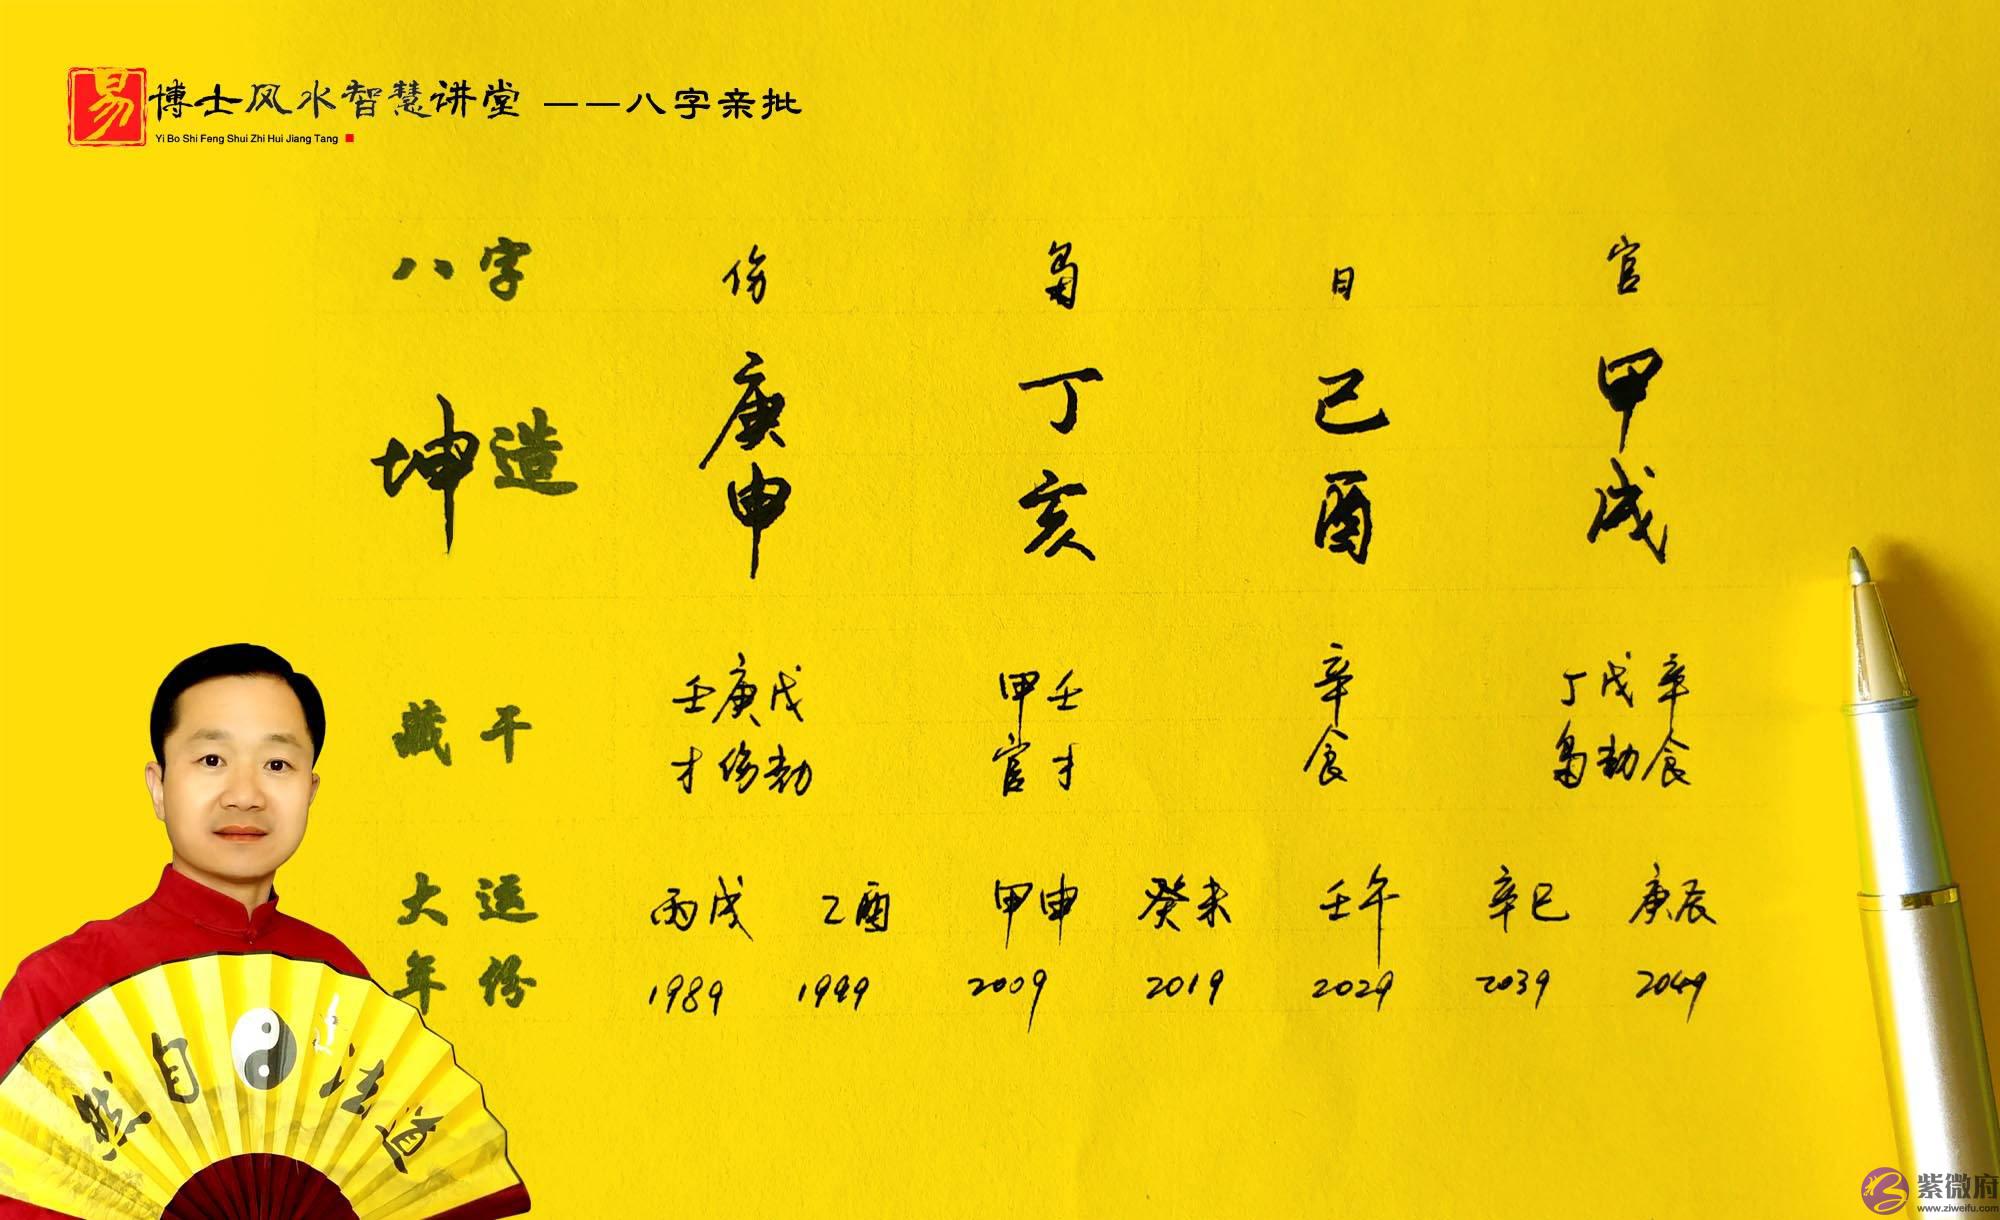 易博士风水智慧讲堂 ——八字亲批
Yi Bo Shi Feng Shui Zhi Hui Jiang Tang
八字 伤 枭 日 官
坤造 庚 丁 己 甲
申 亥 酉 戌
藏干 壬庚戊 甲壬 辛 丁戊辛
才伤劫 官才 食 枭劫食
大运 丙戌 乙酉 甲申 癸未 壬午 辛巳 庚辰
年份 1989 1999 2009 2019 2029 2039 2049
道法自然
紫微府
www.ziweifu.com